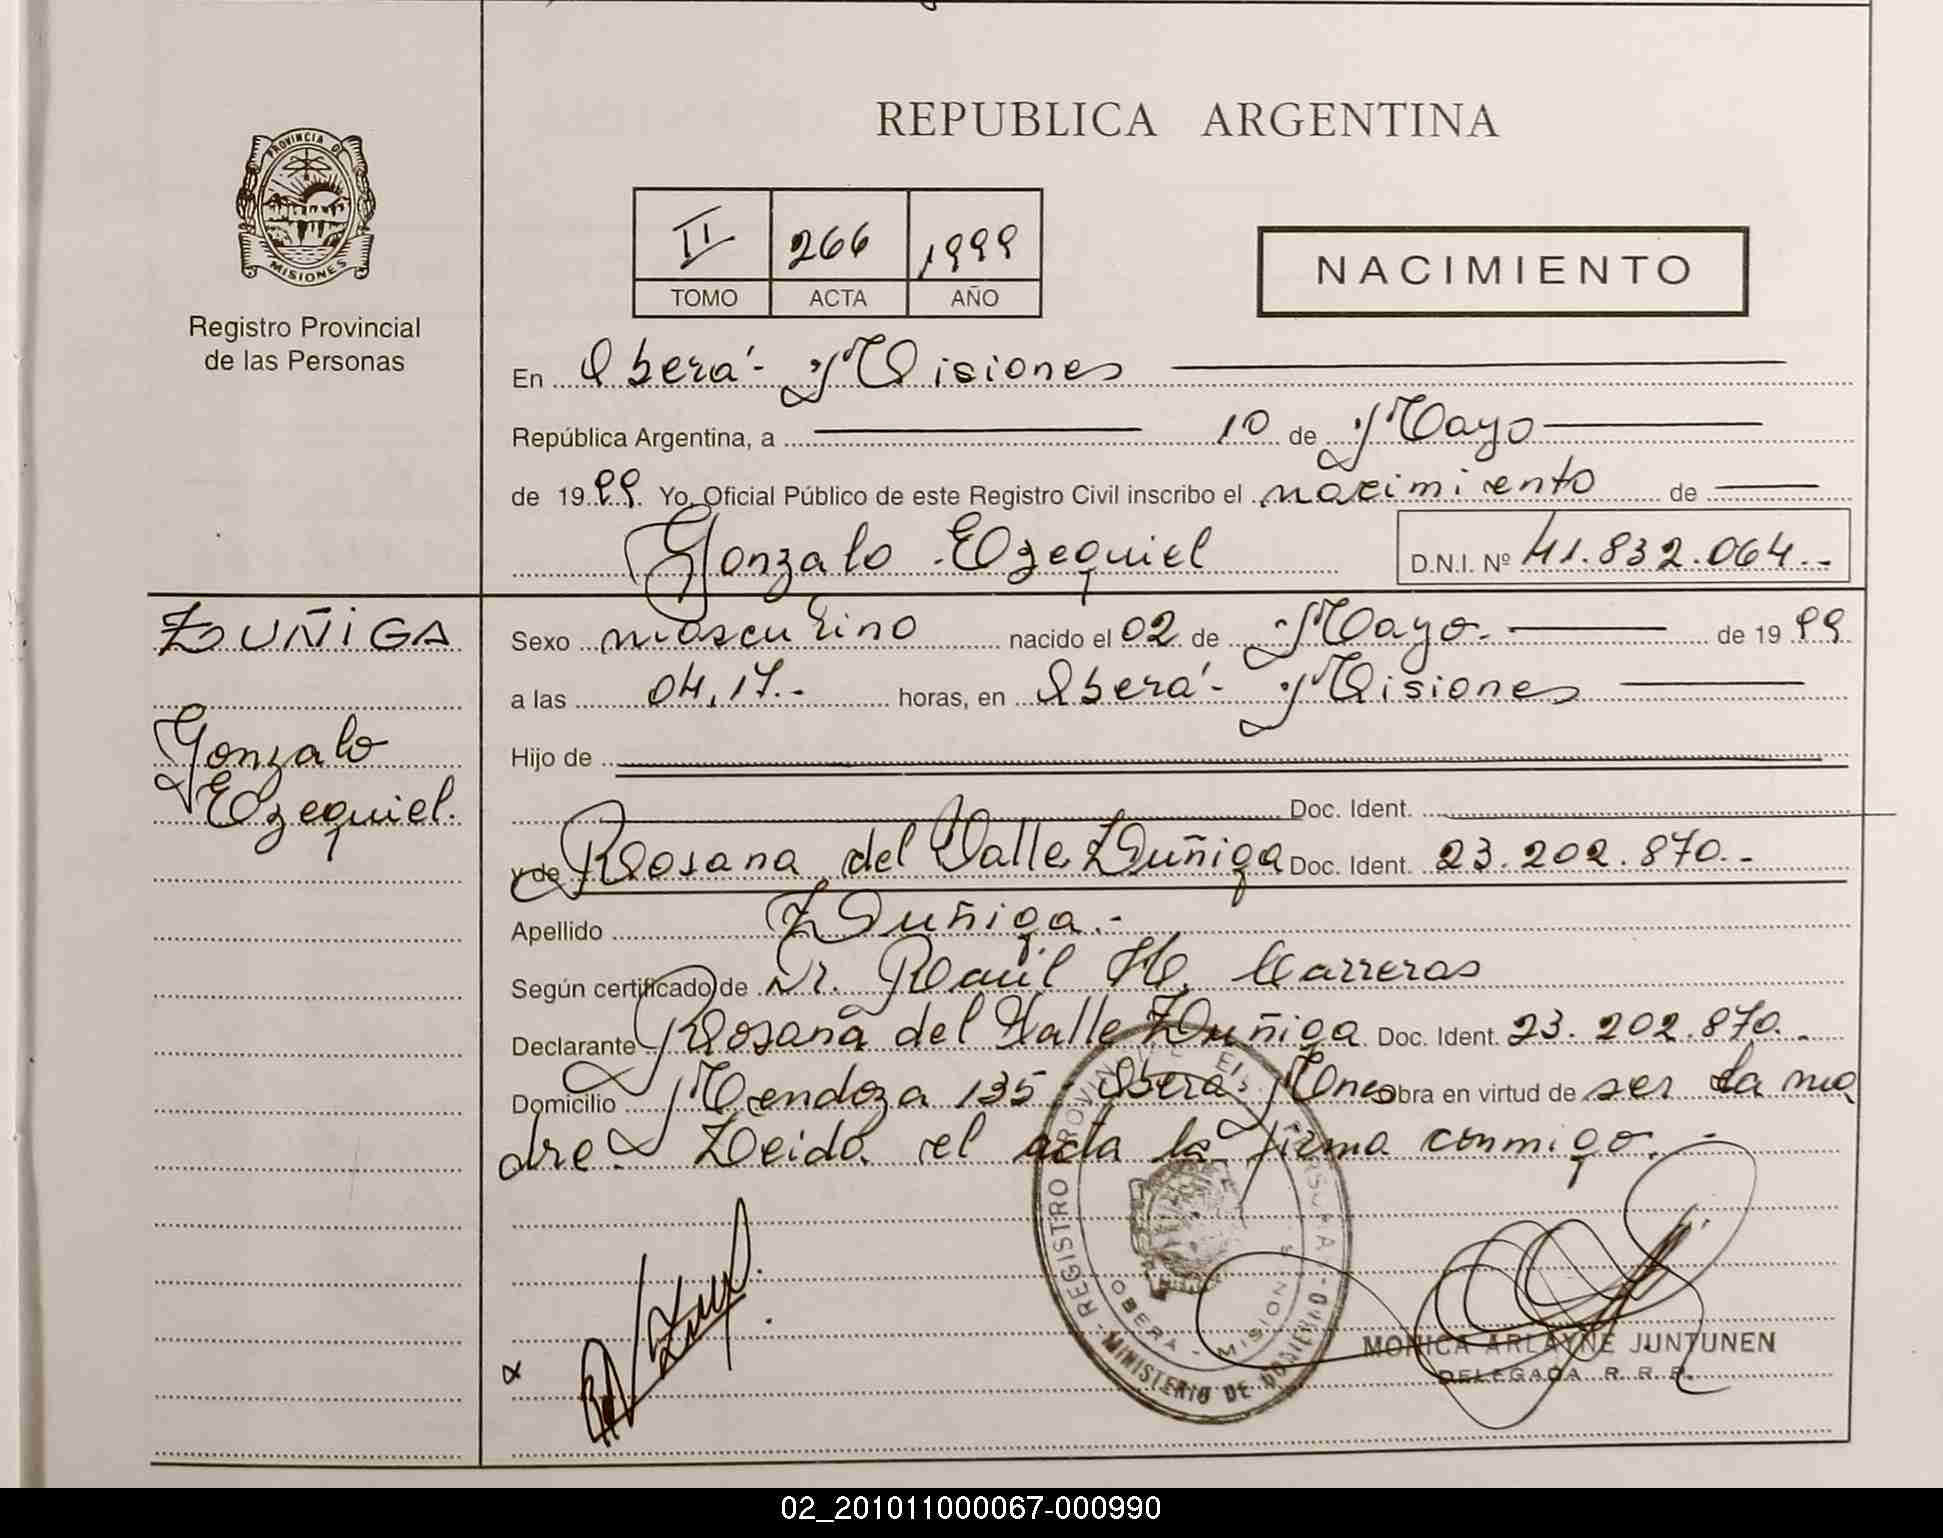 REPUBLICA ARGENTINA
PROVINCIA DE
MISIONES
Registro Provincial
de las Personas
II 266 1999
TOMO ACTA AÑO
NACIMIENTO
En Oberá - Misiones
República Argentina, a 10 de Mayo
de 1999 Yo, Oficial Público de este Registro Civil inscribo el nacimiento de
Gonzalo Ezequiel D.N.I. Nº 41.832.064.-
ZUÑIGA
Gonzalo
Ezequiel.
Sexo masculino nacido el 02 de Mayo.- de 1999
a las 04,17.- horas, en Oberá - Misiones
Hijo de
Doc. Ident.
y de Rosana del Valle Zuñiga Doc. Ident. 23.202.870.-
Apellido Zuñiga.-
Según certificado de Dr. Raúl H. Carreras
Declarante Rosana del Valle Zuñiga Doc. Ident. 23.202.870.-
Domicilio Mendoza 135 - Oberá - Mnes obra en virtud de ser la ma
dre. Leida el acta la firma conmigo.-
REGISTRO PROVINCIAL
OBERA - MISIONES
MINISTERIO DE GOBIERNO
MONICA ARLAYNE JUNTUNEN
DELEGADA R. R. P.
02_201011000067-000990